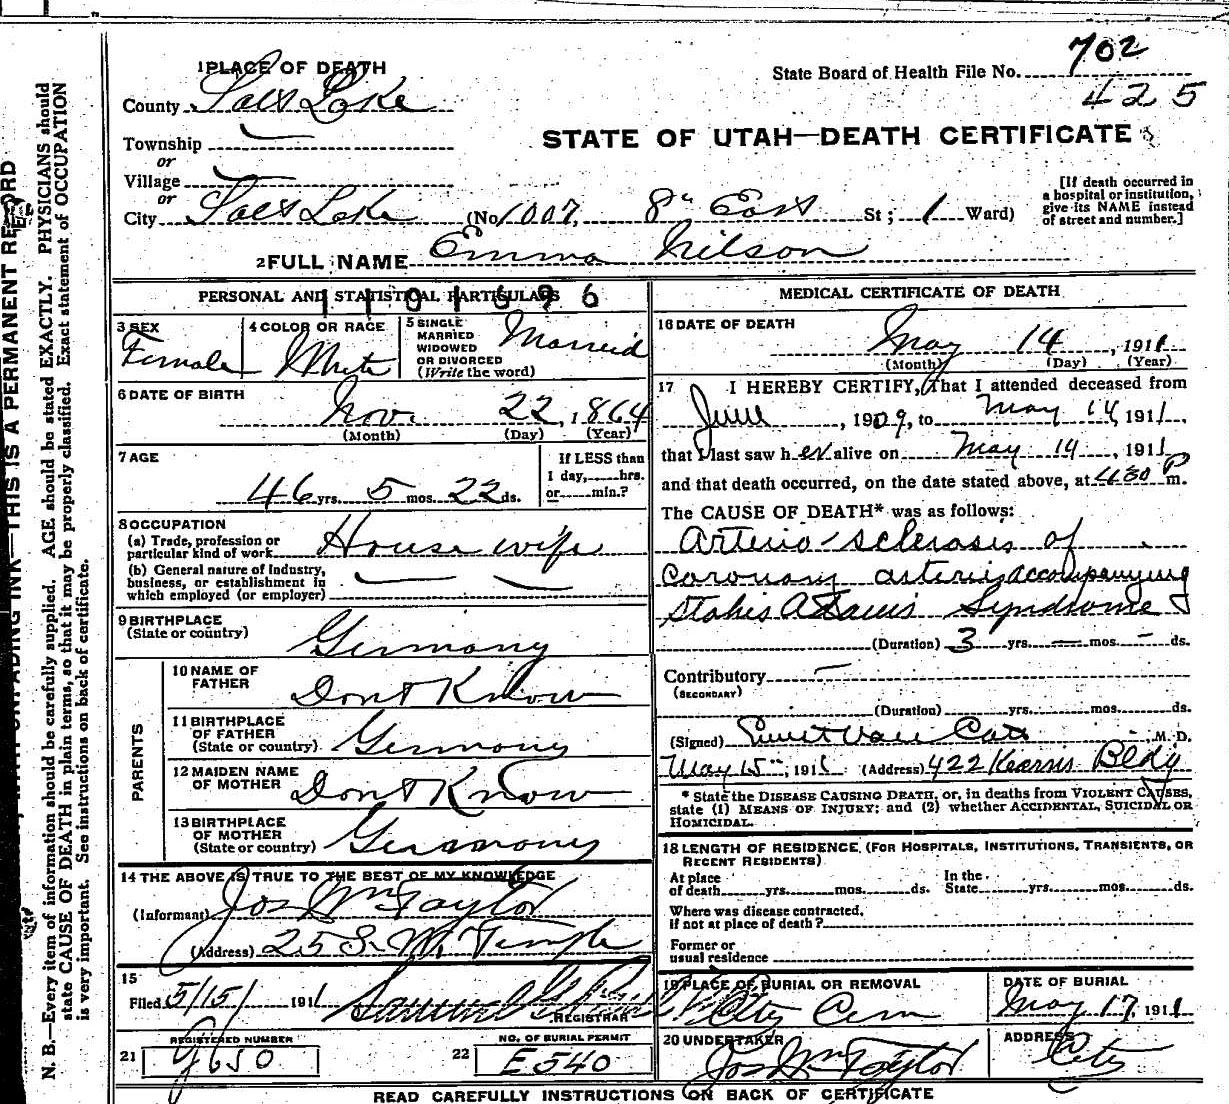 702
State Board of Health File No.
425
1 PLACE OF DEATH
County Salt Lake
STATE OF UTAH—DEATH CERTIFICATE
Township
or
Village
or
City Salt Lake (No. 1007, 8th East St; 1 Ward)
[If death occurred in
a hospital or institution,
give its NAME instead
of street and number.]
2 FULL NAME Emma Nilson
PERSONAL AND STATISTICAL PARTICULARS
1101696
3 SEX
Female
4 COLOR OR RACE
White
5 SINGLE
MARRIED
WIDOWED
OR DIVORCED
(Write the word)
Married
6 DATE OF BIRTH
Nov. 22, 1864
(Month) (Day) (Year)
7 AGE
46 yrs. 5 mos. 22 ds.
If LESS than
1 day, hrs.
or min.?
8 OCCUPATION
(a) Trade, profession or
particular kind of work House wife
(b) General nature of Industry,
business, or establishment in
which employed (or employer)
9 BIRTHPLACE
(State or country) Germany
PARENTS
10 NAME OF
FATHER Dont Know
11 BIRTHPLACE
OF FATHER
(State or country) Germany
12 MAIDEN NAME
OF MOTHER Dont Know
13 BIRTHPLACE
OF MOTHER
(State or country) Germany
14 THE ABOVE IS TRUE TO THE BEST OF MY KNOWLEDGE
(Informant) Jos Wm Taylor
(Address) 25 S. W. Temple
15
Filed 5/15/ 1911 Samuel G.
REGISTRAR
REGISTERED NUMBER
21 9650
NO. OF BURIAL PERMIT
22 E540
MEDICAL CERTIFICATE OF DEATH
16 DATE OF DEATH
May 14, 1911
(Month) (Day) (Year)
17 I HEREBY CERTIFY, That I attended deceased from
June, 1909, to May 14, 1911
that I last saw her alive on May 14, 1911
and that death occurred, on the date stated above, at 4:30 P m.
The CAUSE OF DEATH* was as follows:
Arterio-sclerosis of
coronary arteries accompanying
Stokes Adams Syndrome
(Duration) 3 yrs. mos. ds.
Contributory
(SECONDARY)
(Duration) yrs. mos. ds.
(Signed) Van Cott M. D.
May 15, 1911 (Address) 422 Kearns Bldg
* State the DISEASE CAUSING DEATH, or, in deaths from VIOLENT CAUSES,
state (1) MEANS OF INJURY; and (2) whether ACCIDENTAL, SUICIDAL OR
HOMICIDAL.
18 LENGTH OF RESIDENCE, (FOR HOSPITALS, INSTITUTIONS, TRANSIENTS, OR
RECENT RESIDENTS)
At place
of death yrs. mos. ds.
In the
State yrs. mos. ds.
Where was disease contracted,
if not at place of death?
Former or
usual residence
19 PLACE OF BURIAL OR REMOVAL
City Cem
DATE OF BURIAL
May 17, 1911
20 UNDERTAKER
Jos Wm Taylor
ADDRESS
City
READ CAREFULLY INSTRUCTIONS ON BACK OF CERTIFICATE
UNFADING INK—THIS IS A PERMANENT RECORD
N. B.—Every item of information should be carefully supplied. AGE should be stated EXACTLY. PHYSICIANS should
state CAUSE OF DEATH in plain terms, so that it may be properly classified. Exact statement of OCCUPATION
is very important. See instructions on back of certificate.